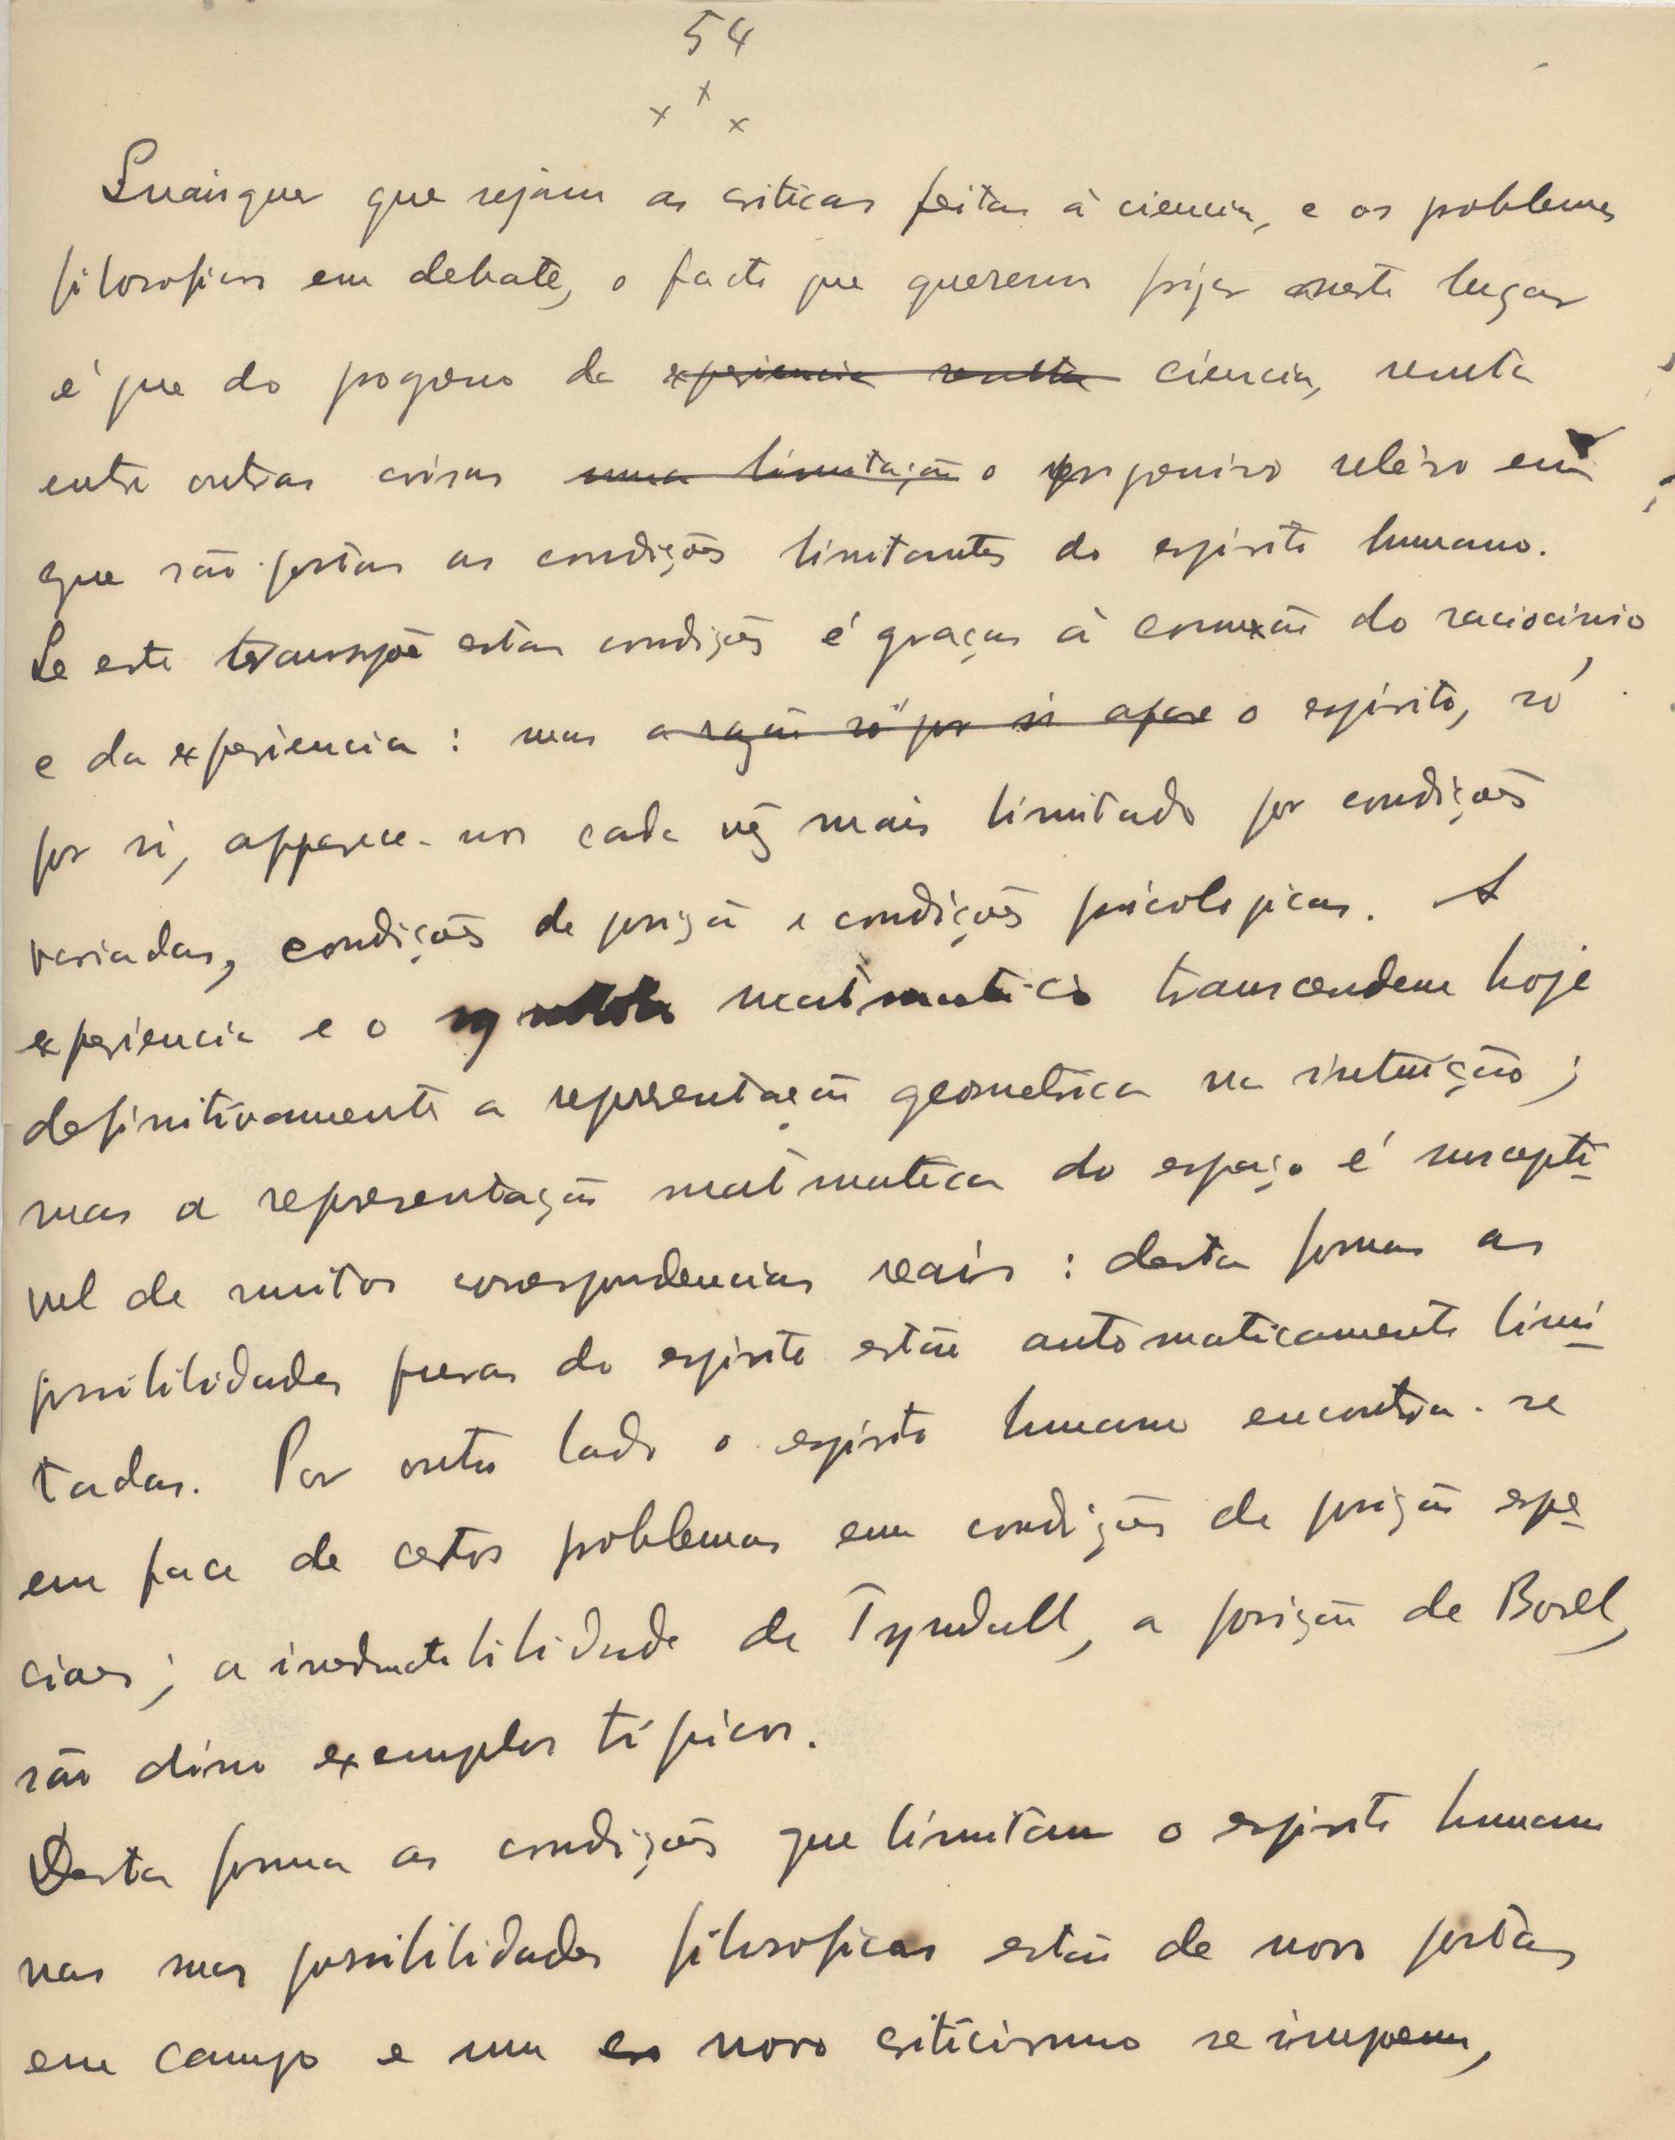 54
x x x
Quaisquer que sejam as criticas feitas à ciencia, e os problemas
filosoficos em debate, o facto que queremos frizar neste lugar
é que do progresso da experiencia resulta ciencia, resulta
entre outras coisas uma limitação o progressivo relêvo em
que são postas as condições limitantes do espirito humano.
Se este transpõe estas condições é graças à connexão do raciocinio
e da experiencia : mas a razão só por si apare o espirito, só
por si, apparece-nos cada vêz mais limitado por condições
variadas, condições de posição e condições psicologicas. A
experiencia e o symbolo matematico transcendem hoje
definitivamente a representação geometrica na intuição ;
mas a representação matematica do espaço é suscepti-
vel de muitas correspondencias reais : desta forma as
possibilidades puras do espirito estão automaticamente limi-
tadas. Por outro lado o espirito humano encontra-se
em face de certos problemas em condições de posição espe-
ciaes ; a irreductibilidade de Tyndall, a posição de Borel,
são disso exemplos típicos.
Desta forma as condições que limitam o espirito humano
nas suas possibilidades filosoficas estão de novo postas
em campo e um novo criticismo se impoem,